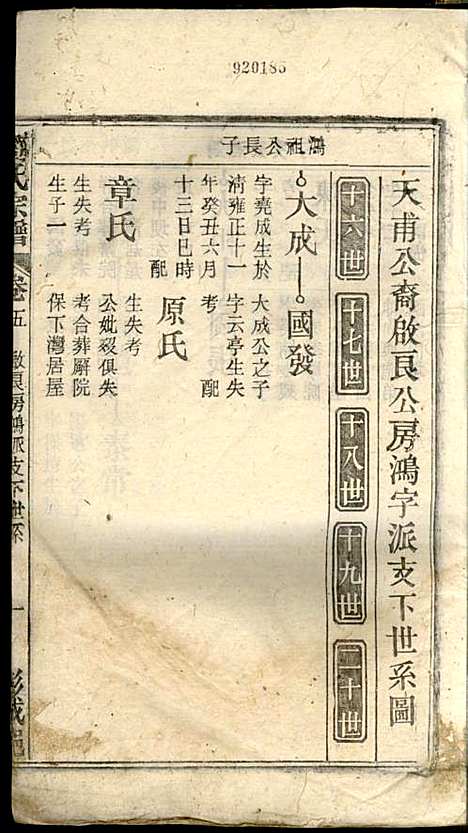 920186
天甫公裔啟良公房鴻字派支下世系圖
十六世
十七世
十八世
十九世
二十世
鴻祖公長子
大成
國發
字堯成生於
清雍正十一
年癸丑六月
十三日巳時
配
章氏
生失考
生子一
大成公之子
字云亭生失
考 配
原氏
生失考
公妣歿俱失
考合葬厫院
保下灣居屋
氏宗譜
卷五
啟良房鴻派支下世系
一
彭城邑